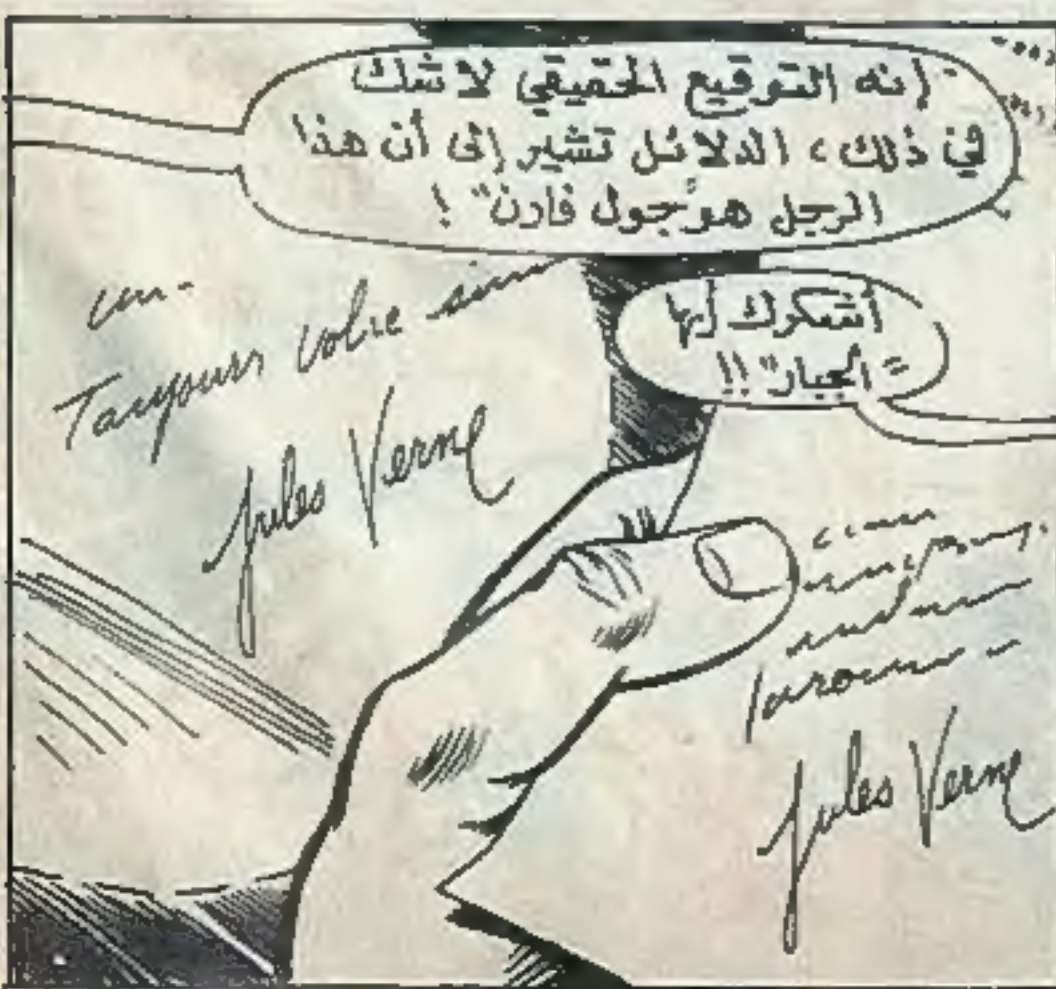 إنه التوقيع الحقيقي لا شك
في ذلك، الدلائل تشير إلى أن هذا
الرجل هو "جول فارن"!
أشكرك أيها
"الجبار"!!
Toujours votre
Jules Verne
Jules Verne